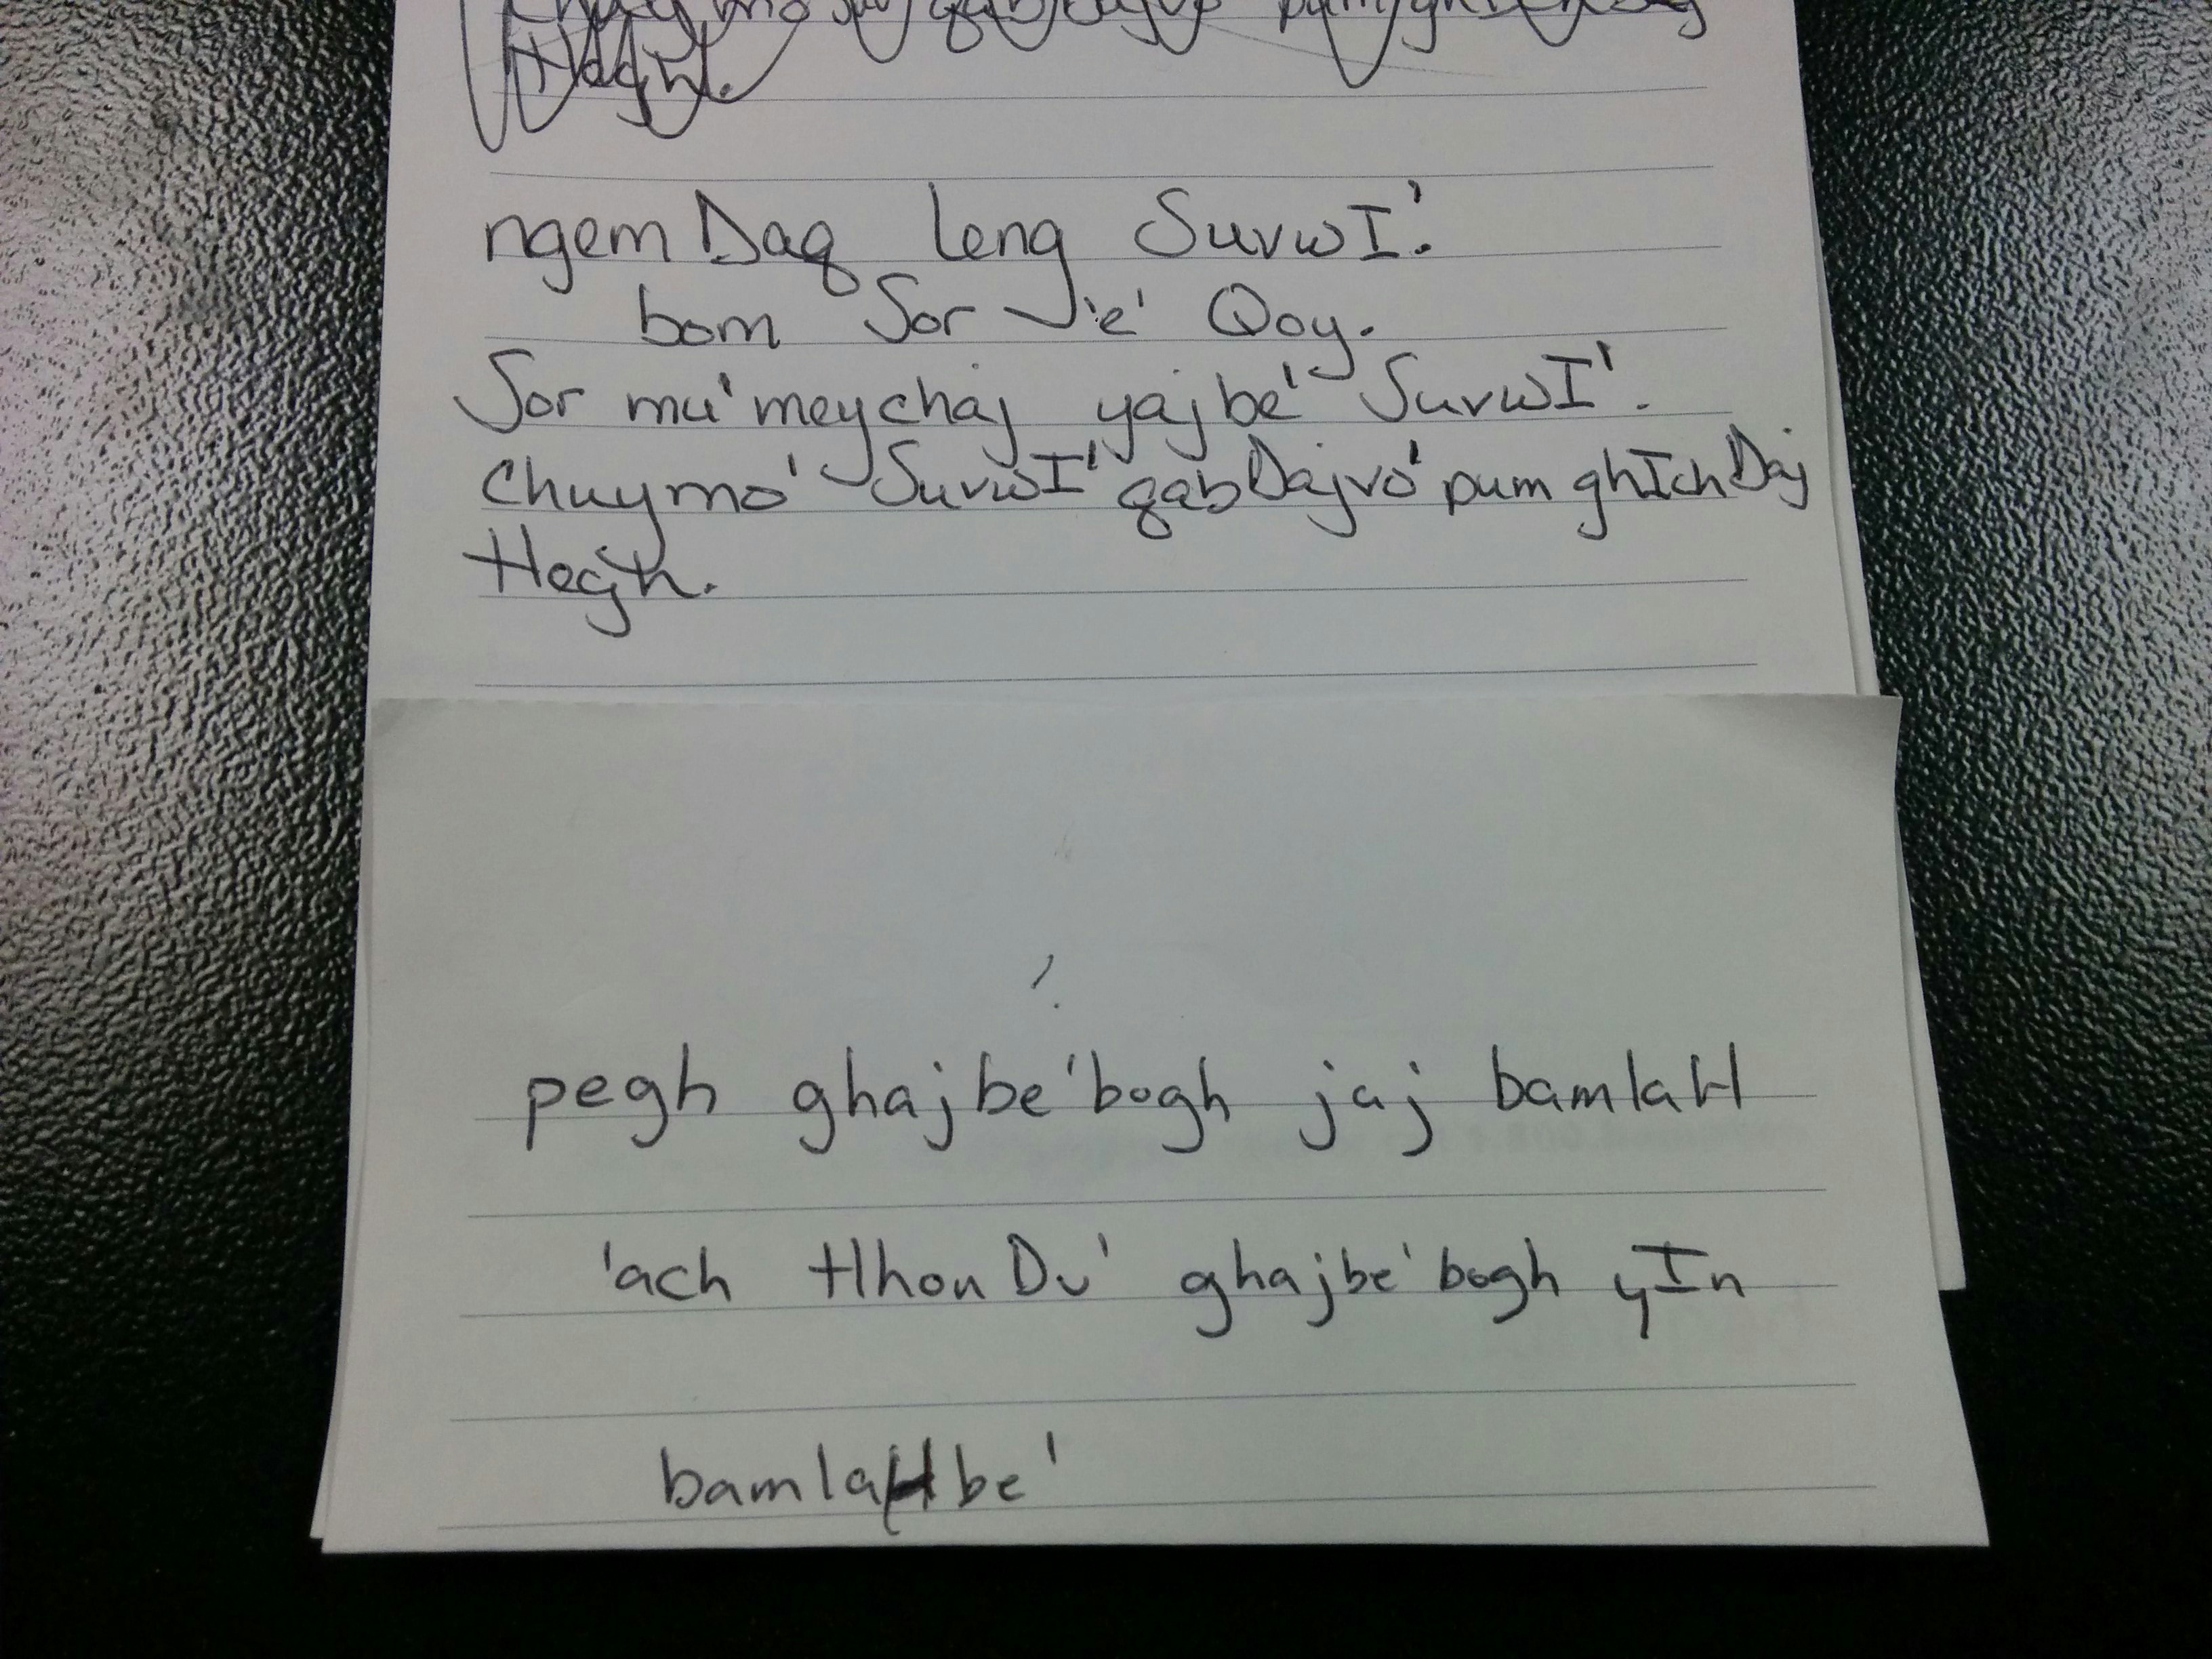 ngemDaq leng SuvwI'.
bom Sor 'e' Qoy.
Sor mu'meychaj yajbe' SuvwI'.
chuymo' SuvwI' qabDajvo' pum ghIchDaj
Hegh.
pegh ghajbe'bogh jaj bamlaH
'ach tlhonDu' ghajbe'bogh yIn
bamlaHbe'